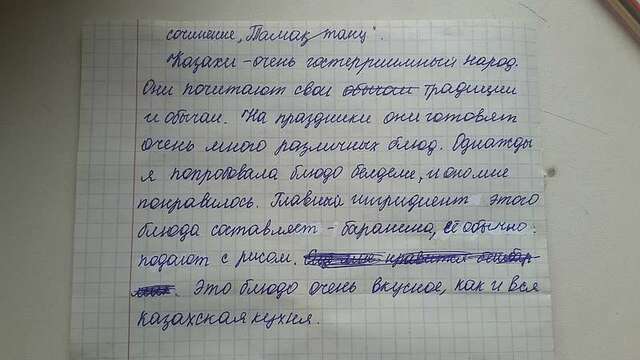 Казахи - очень гостеприимный народ.
Они почитают свои традиции
и обычаи. На праздники они готовят
очень много различных блюд. Однажды
я попробовала блюдо и оно мне
понравилось. Главный ингридиент этого
блюда составляет - баранина, её обычно
подают с рисом.
Это блюдо очень вкусное, как и вся
казахская кухня.